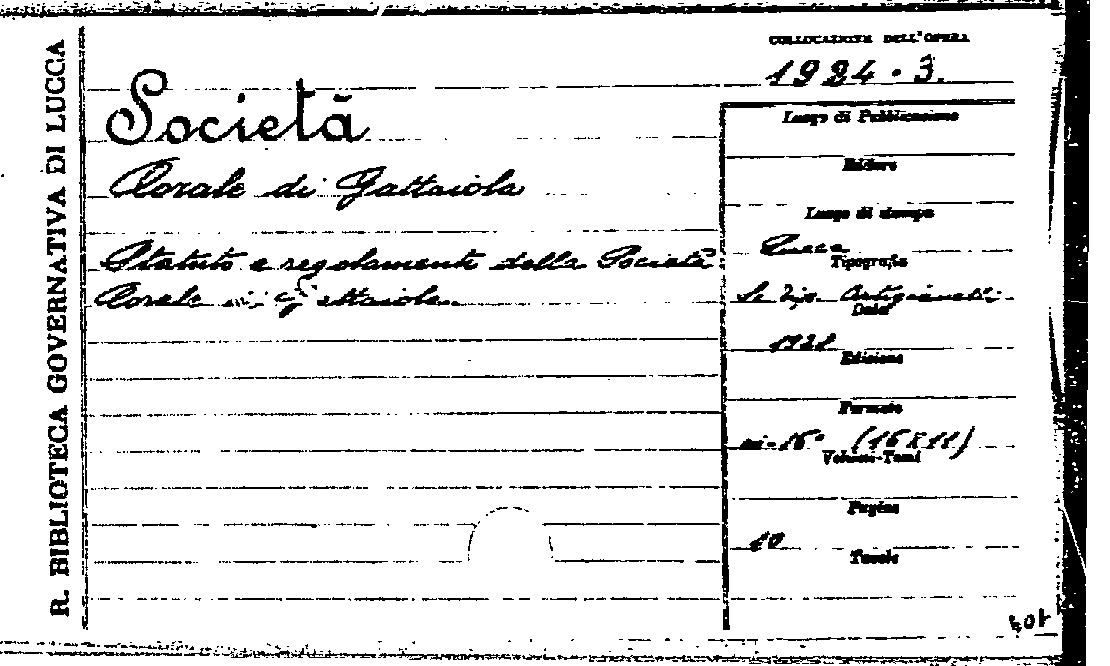 R. BIBLIOTECA GOVERNATIVA DI LUCCA
Società
Corale di Gattaiola
Statuto e regolamento della Società
Corale di Gattaiola.
COLLOCAZIONE DELL'OPERA
1924 · 3.
Luogo di Pubblicazione
Editore
Luogo di stampa
Lucca
Tipografia
Sc. Tip. Artigianelli
Data
1921
Edizione
Formato
in-16° (16X11)
Volumi-Tomi
Pagine
10
Tavole